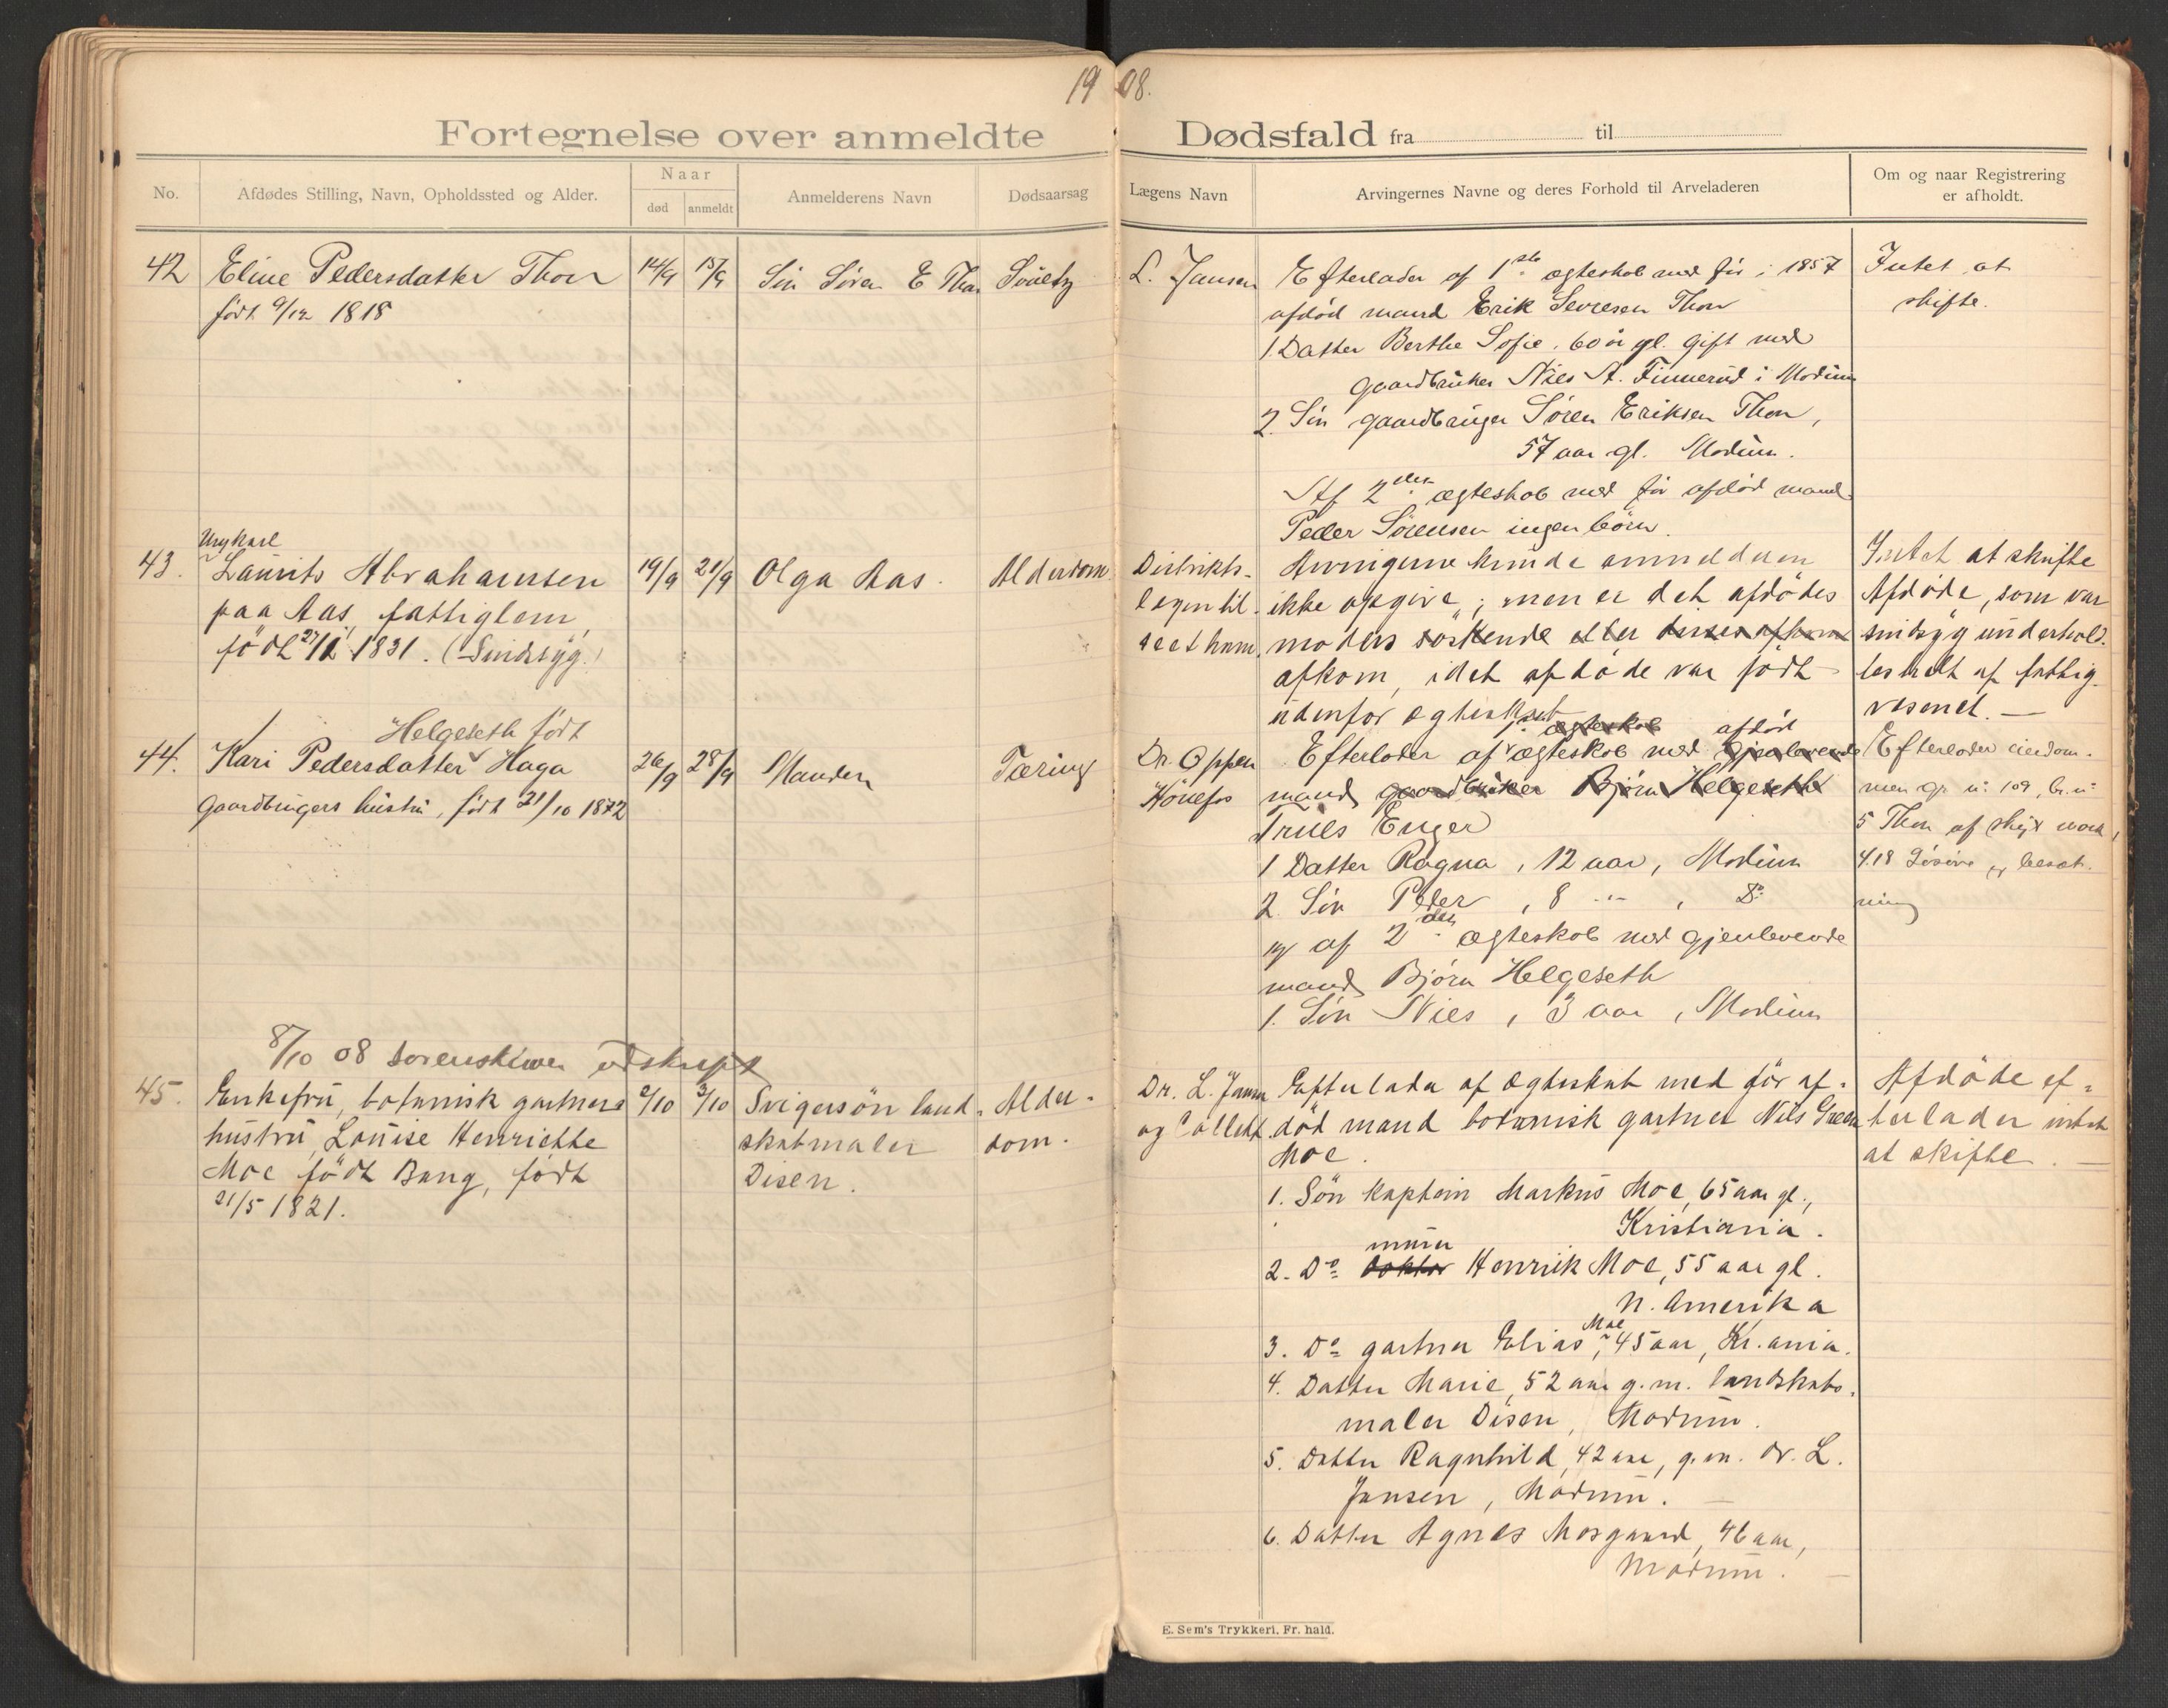 19 08.
Fortegnelse over anmeldte Dødsfald fra til
No.
Afdødes Stilling, Navn, Opholdssted og Alder.
Naar
død
anmeldt
Anmelderens Navn
Dødsaarsag
Lægens Navn
Arvingernes Navne og deres Forhold til Arveladeren
Om og naar Registrering
er afholdt.
42
Eline Pedersdatter Thon
født 9/12 1818
14/9
15/9
Sön Sören E Thon
L. Jansen
Efterlader af 1ste ægteskab med før i 1857
afdød mand Erik Thon
1 Datter Berthe Sofie, 60 år gl. gift med
gaardbruker Niels A. Finnerud i Modum
2. Sön gaardbruger Sören Eriksen Thon,
57 aar gl. Modum.
Af 2det ægteskab med för afdød mand
Peder Sörensen ingen börn.
Intet at
skifte.
43.
Ungkarl
Laurits Abrahamsen
paa Aas, fattiglem,
född 27/12 1831. (Sindssyg.)
19/9
21/9
Olga Aas.
Alderdom
Distrikts-
lægen til-
seet ham.
Arvingerne kunde anmelderen
ikke opgive; men er det afdödes
moders söskende eller disses afkom
afkom, idet afdöde var födt
udenfor ægteskab
Intet at skifte
Afdöde, som var
sindsyg underhold-
tes helt af fattig-
væsenet.
44.
Helgeseth født
Kari Pedersdatter Haga
Gaardbrugers hustru, født 21/10 1872
26/9
28/9
Manden
Tæring
Dr. Oppen
Hönefos
1. ægteskab afdød
Efterlader af ægteskab med gjenlevende
mand gaardbruker Björn Helgeseth
Truls Enger
1 Datter Ragna, 12 aar, Modum
2. Sön Peder, 8 -"-, Do
og af 2den ægteskab med gjenlevende
mand Björn Helgeseth
1. Sön Niels, 3 aar, Modum
Efterlader eiendom-
men gr. n: 109, br. n:
5 Thon af skyld mark
4.18 Lösöre og besæt-
ning
8/10 08 sorenskriver udskrift
45.
Enkefru, botanisk gartners
hustru, Louise Henriette
Moe född Bang, född
21/5 1821.
2/10
3/10
Svigersön land-
skabmaler
Disen.
Alder-
dom.
Dr. L. Jansen
og Collett
Efterlader af ægteskab med för af-
död mand botanisk gartner Nils Green
Moe.
1. Sön kaptein Markus Moe, 65 aar gl.,
Kristiania.
2. Do doktor Henrik Moe, 55 aar gl.
N. Amerika
3. Do gartner Elias Moe, 45 aar, Kr.ania.
4. Datter Marie, 52 aar g.m. landskabs-
maler Disen, Modum.
5. Datter Ragnhild, 42 aar, g.m. dr. L.
Jansen, Modum.
6. Datter Agnes Mosgaard, 46 aar,
Modum.
Afdöde ef-
terlader intet
at skifte.
E. Sem's Trykkeri. Fr. hald.